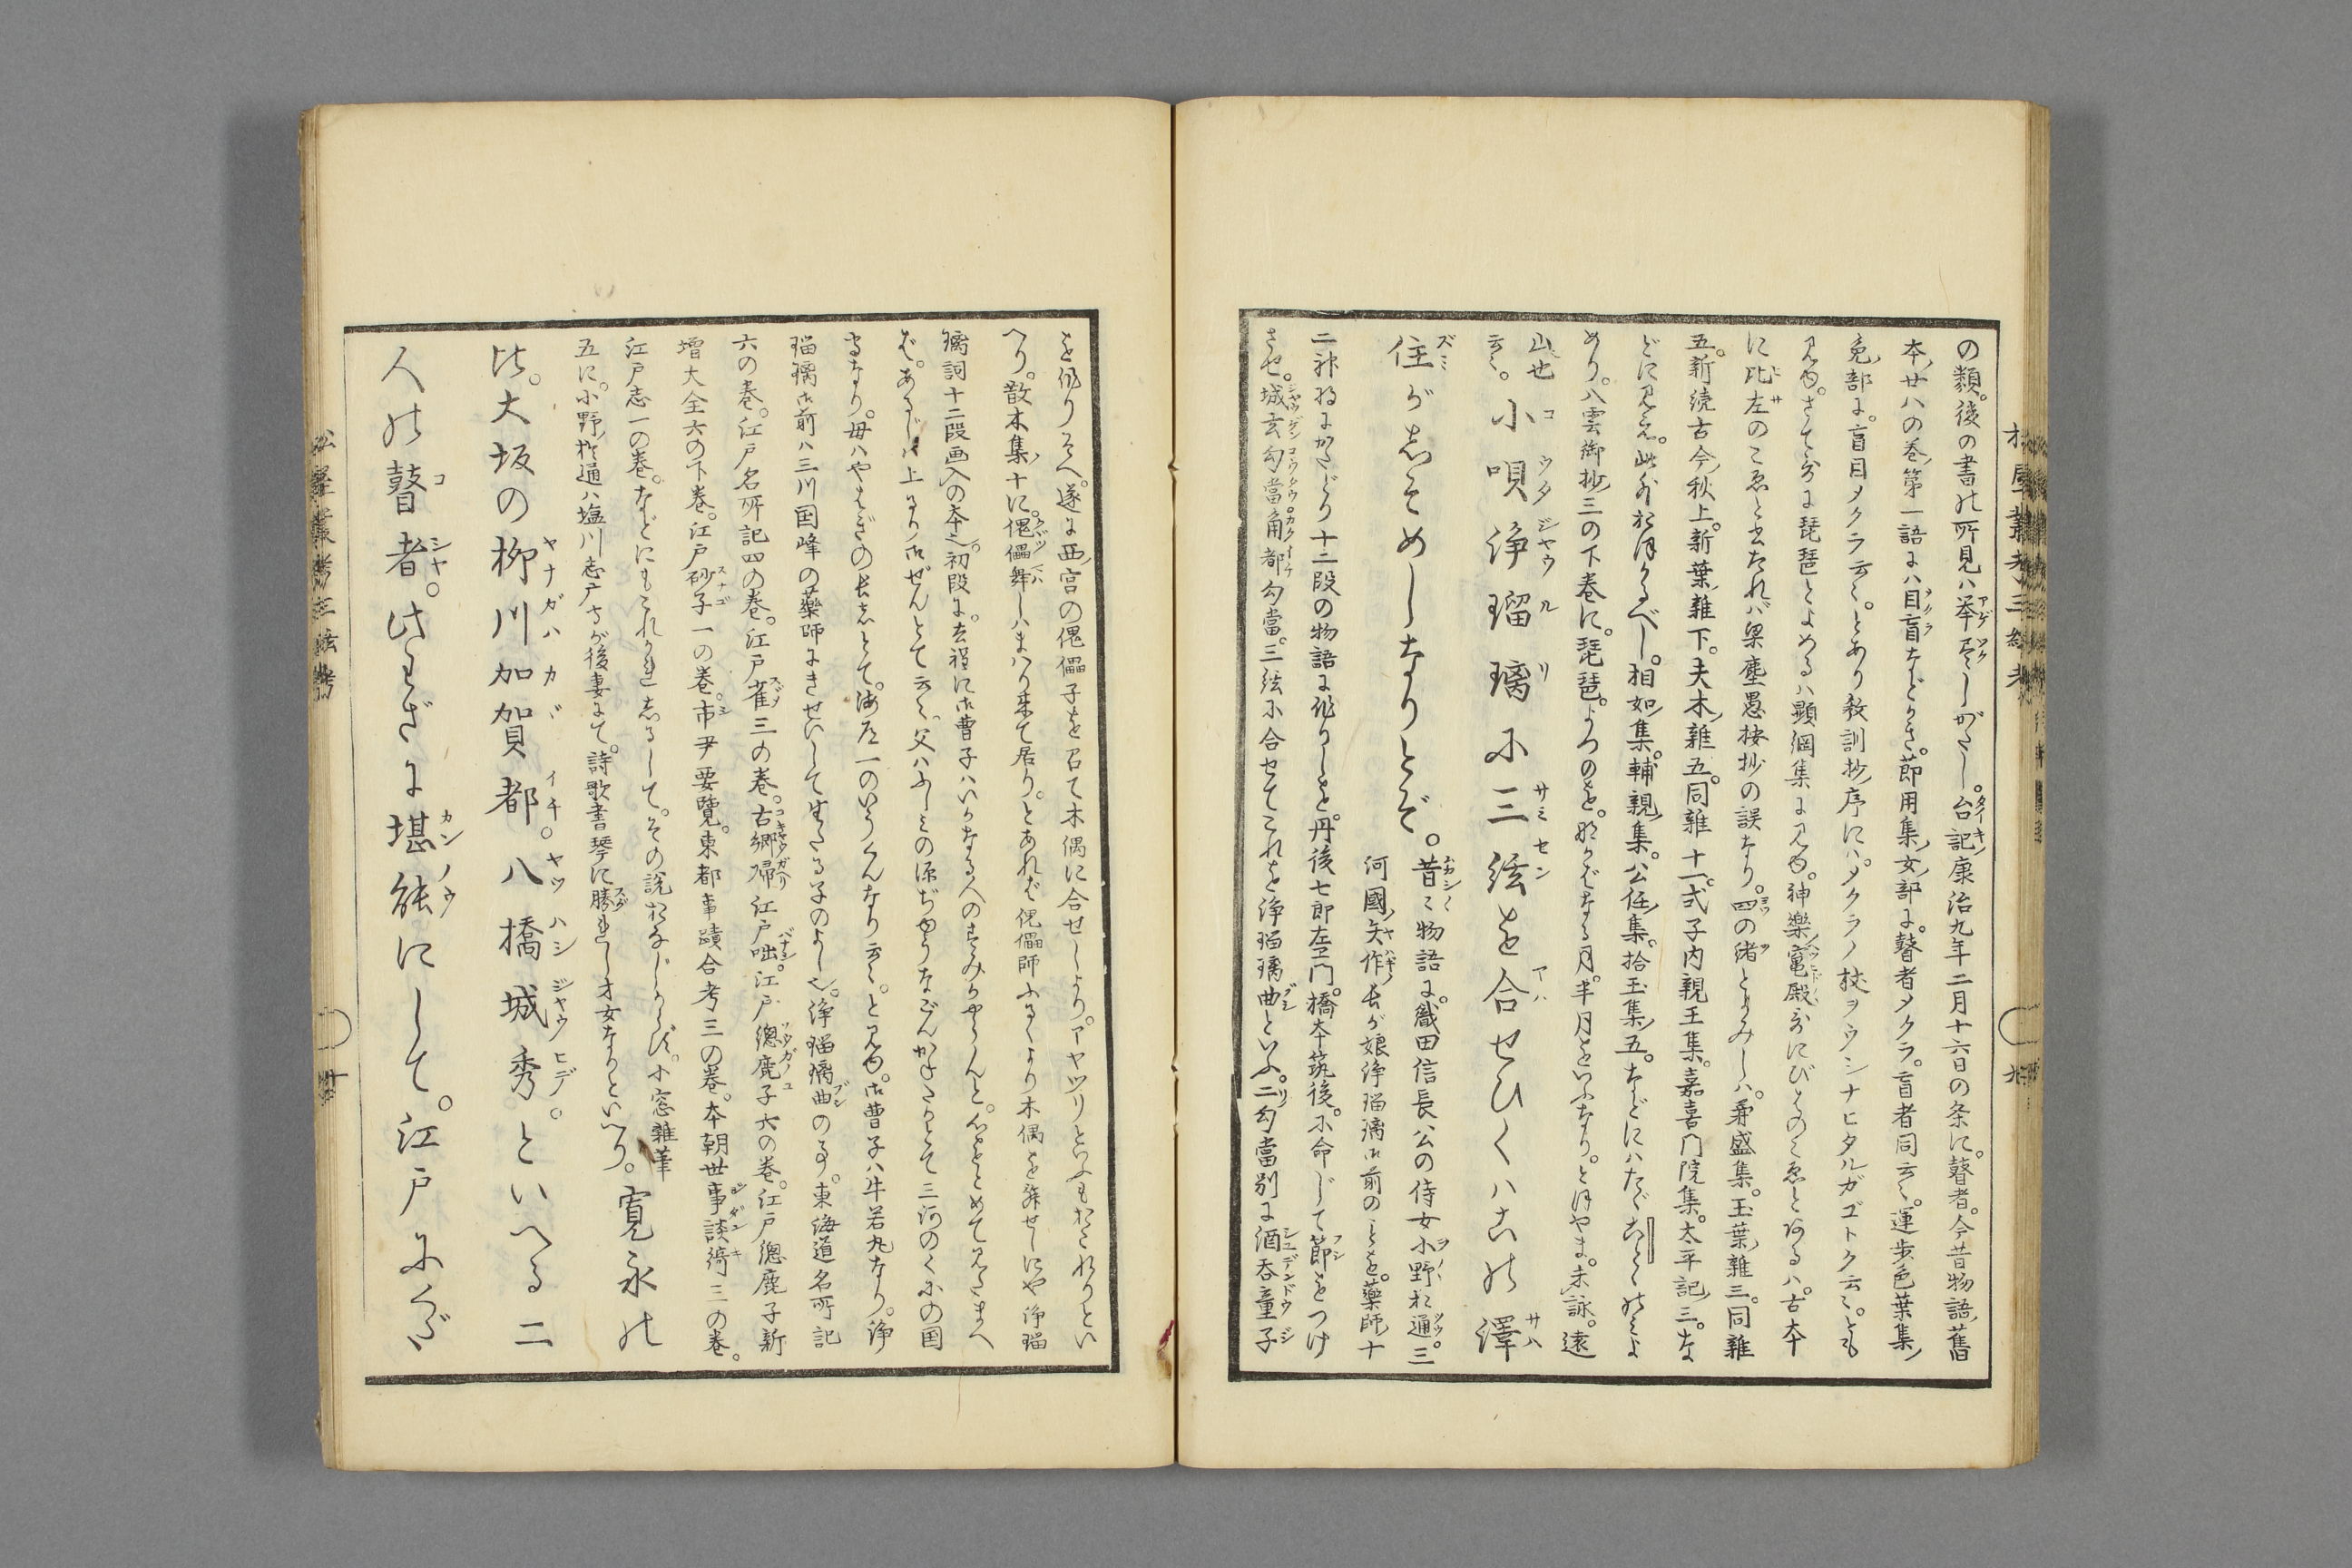 の類。後の書の所見ハ挙尽しがたし。台記康治九年二月十六日の条に。瞽者。今昔物語舊
本廿八の巻第一語に八目盲などかき。節用集女部に。瞽者メクラ。盲者同云々。運歩色葉集
免部に。盲目メクラ云々。とあり教訓抄序にハ。メクラノ杖ヲウシナヒタルガゴトク云々。とも
見ゆ。さて哥に琵琶とよめるハ顕綱集に見ゆ。神樂竃殿哥にびはのこゑとあるハ。古本
に比左のこゑと出たれバ梁塵愚按抄の誤なり。四の緒とよみしハ。兼盛集。玉葉雑三。同雑
五。新続古今秋上。新葉雑下。夫木雑五。同雑十一。式子内親王集。嘉喜門院集。太平記三。な
どに見ゆ。此外おほかるべし。相如集。輔親集。公任集。拾玉集五。などにハたゞことゝのミよ
めり。八雲御抄三の下巻に。琵琶。よつのを。なかばなる月。半月をいふなり。とほやま。未詠。遠
山也
云々。小唄浄瑠璃に三絃を合せひくハこの澤
住がそめしなりとぞ。昔々物語に。織田信長公の侍女小野於通。三
河國矢作の長が娘浄瑠璃御前のことを。藥師十
二神将にかたどり十二段の物語に作りしを。丹後七郎左エ門。橋本筑後。に命じて節をつけ
させ。城玄勾當。角都勾當。三絃に合せてこれを浄瑠璃曲といふ。二勾當別に酒呑童子
を作りそへ。遂に西宮の傀儡子を召て木偶に合せしより。アヤツリといふもおこれりとい
へり。散木集十に。傀儡舞しハまハり来て居り。とあれバ傀儡師ふるくより木偶を舞せしにや浄瑠
璃詞十二段画入の本也。初段に。去程に御曹子ハいかなる人のすみかやらんと。心をとめて見たまへ
ば。あるじの上るり御ぜんとて云々。父ハふしミの源ぢ中うなごんかねたかとて三河のくにの国
守なり。母ハやはぎの長者とて。海道一のいうくんなり云々。と見ゆ。御曹子ハ牛若丸なり。浄
瑠璃御前ハ三川国峰の藥師にきせいして生たる子のよし也。浄瑠璃曲の事。東海道名所記
六の巻。江戸名所記四の巻。江戸雀三の巻。古郷帰江戸咄。江戸總鹿子六の巻。江戸總鹿子新
増大全六の下巻。江戸砂子一の巻。市尹要覽。東都事蹟合考三の巻。本朝世事談綺三の巻。
江戸志一の巻。などにもこれかれしるして。その説おなじからず。小窓雑筆
五に。小野於通ハ塩川志广守が後妻にて。詩歌書琴に勝れし才女なりといへり。寛永の
比。大坂の柳川加賀都。八橋城秀。といへる二
人の瞽者。此わざに堪能にして。江戸にくだ